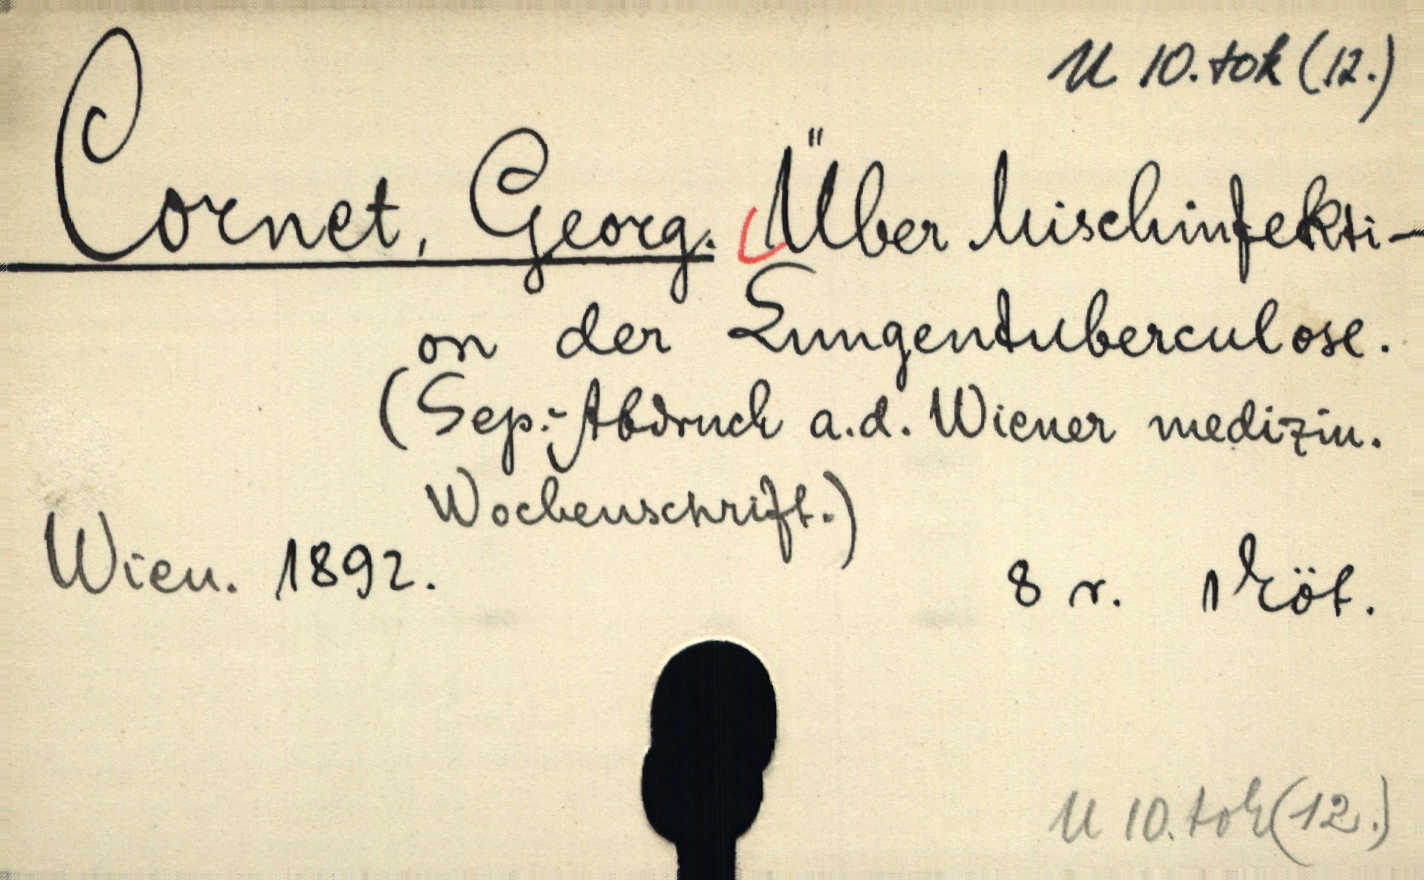 U 10. tok (12.)
Cornet, Georg. Über Mischinfekti-
on der Lungentuberculose.
(Sep.-Abdruck a. d. Wiener medizin.
Wochenschrift.)
Wien. 1892. 8 r. 1 köt.
U 10. tok (12.)